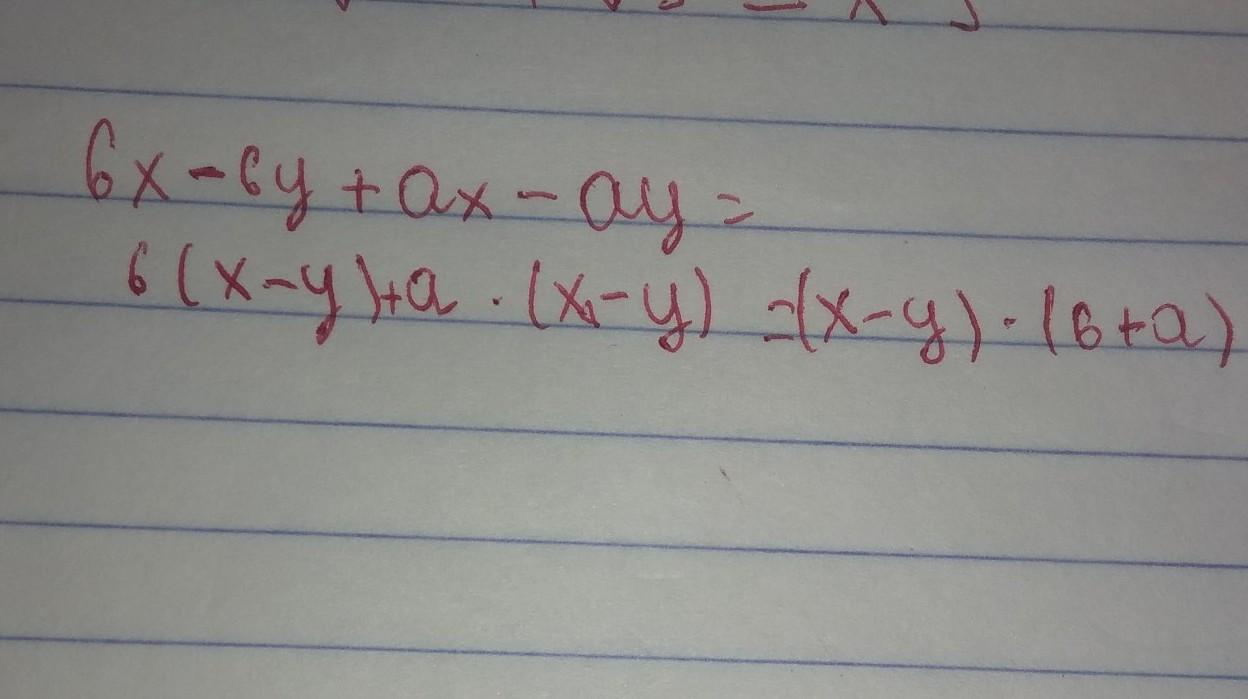 6x - 6y + ax - ay =
6(x-y)+a · (x-y) =(x-y) · (6+a)